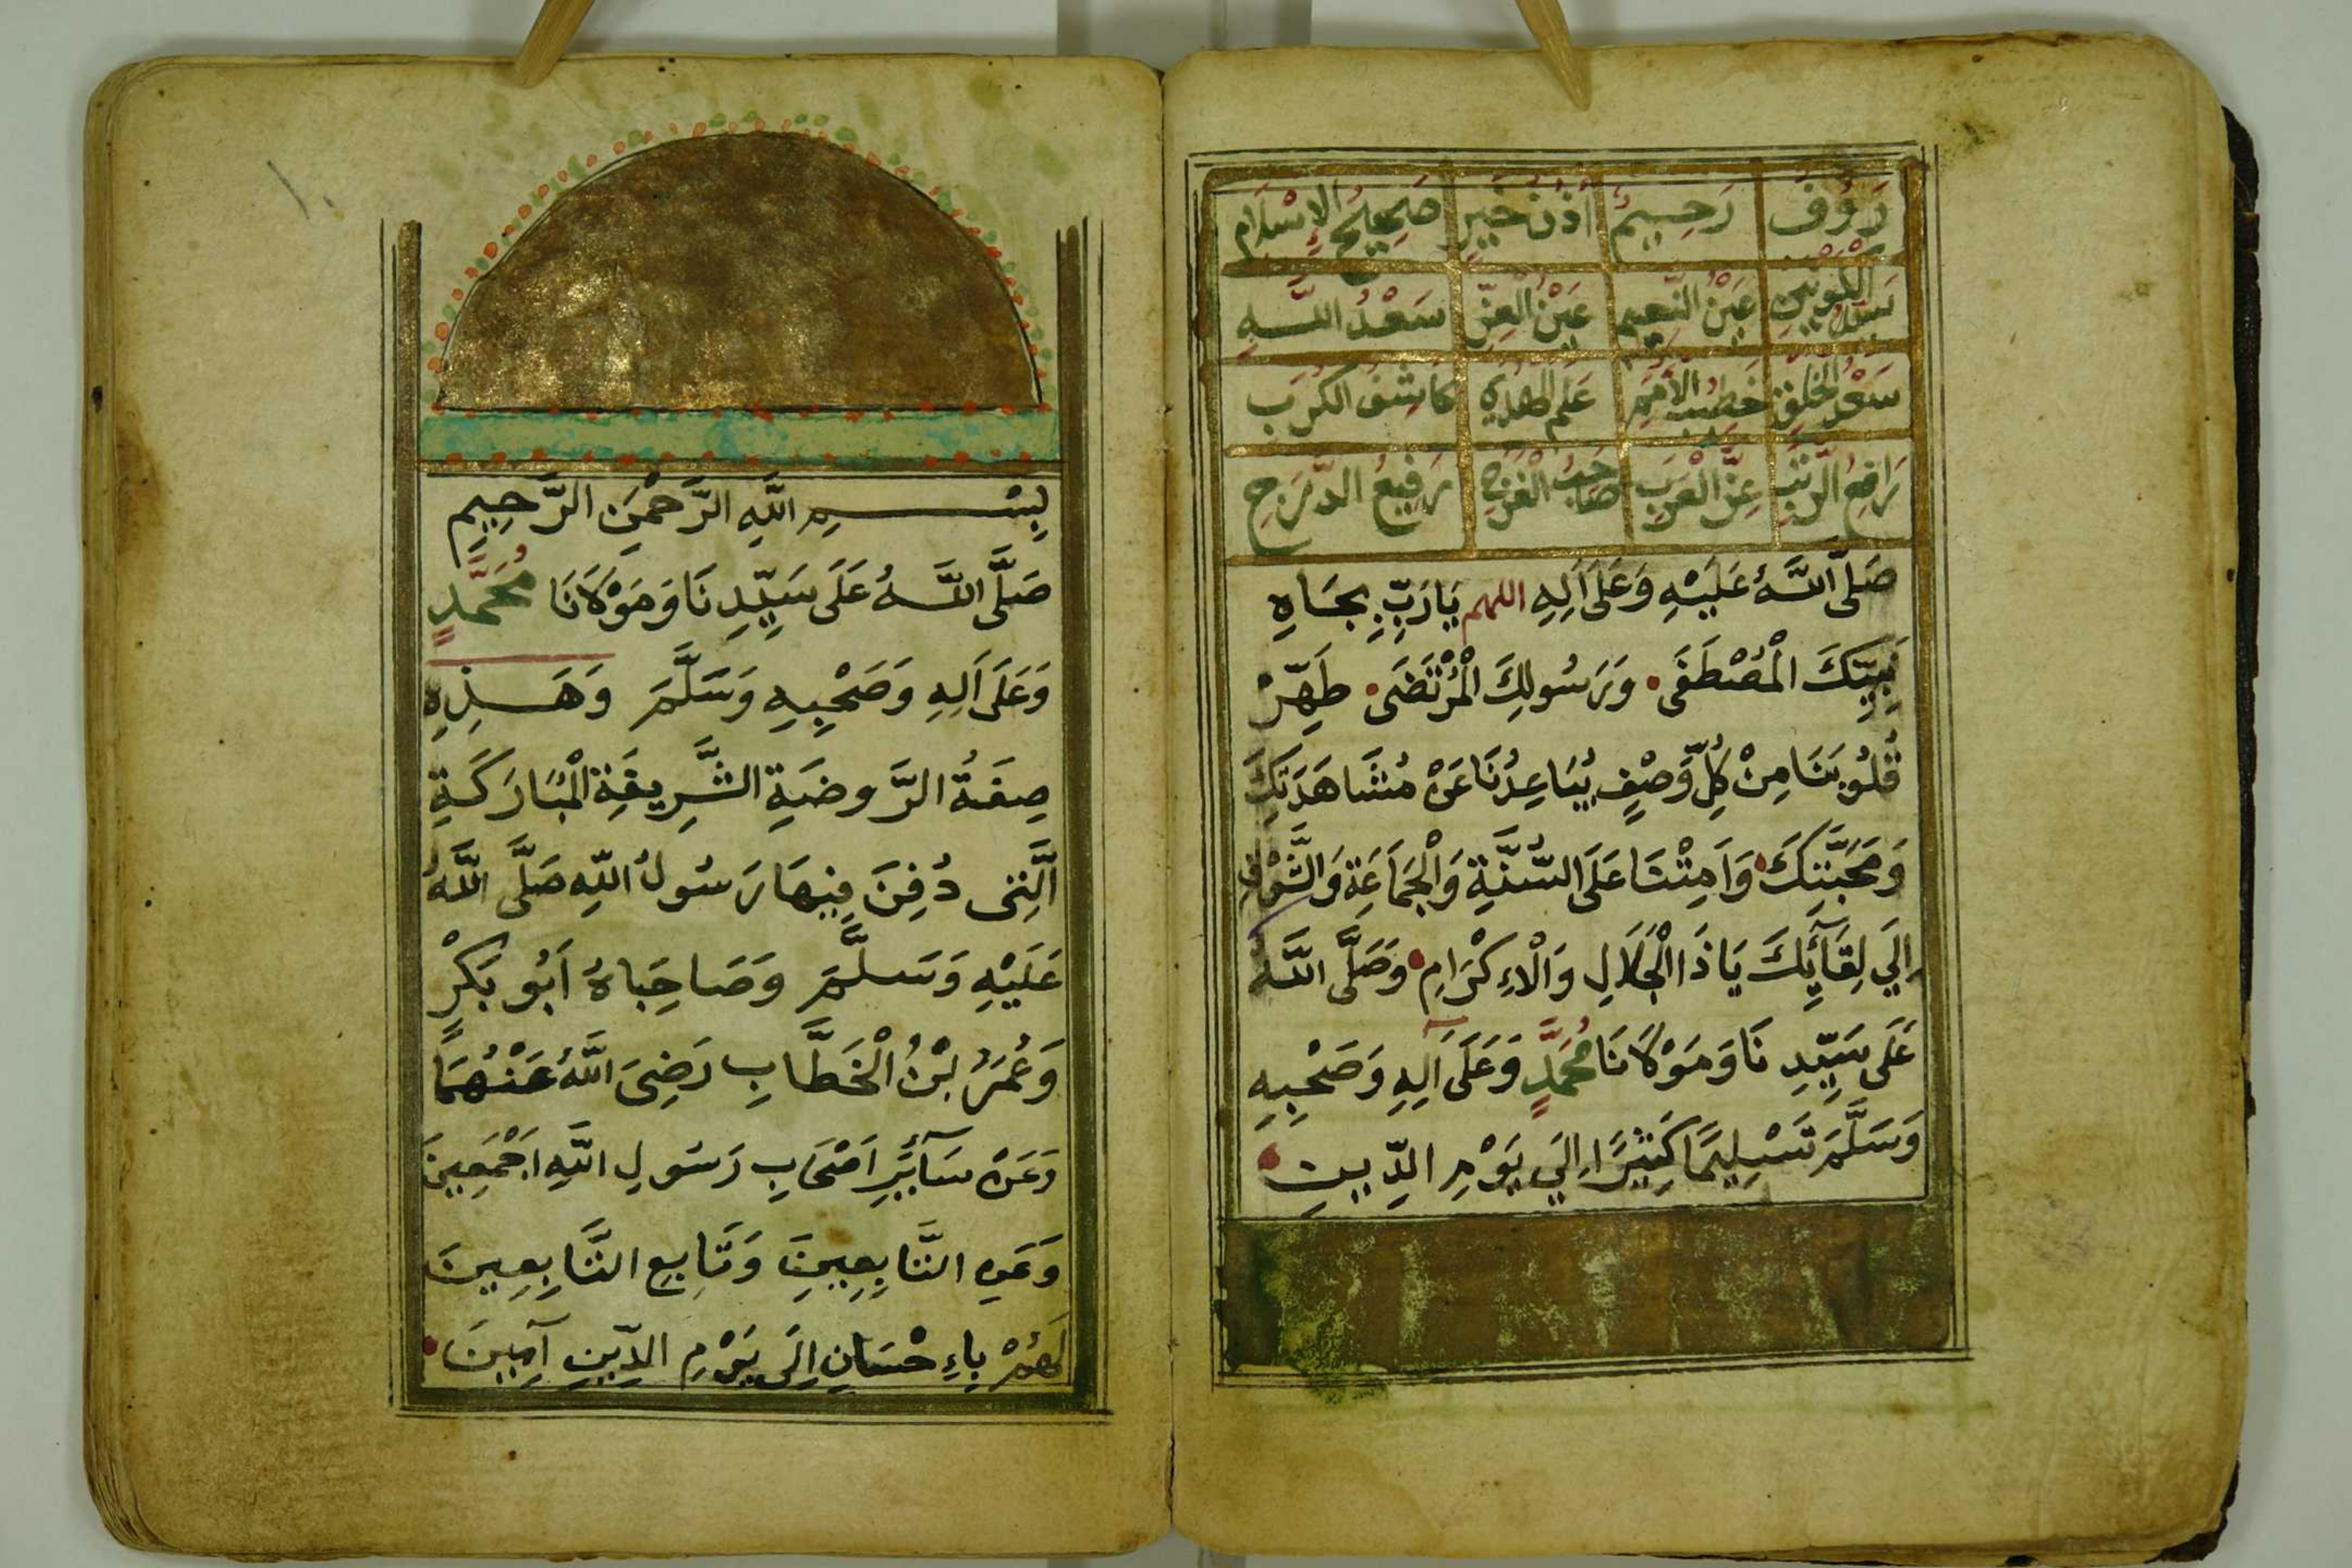 رَؤُفٌ رَحِيمٌ أُذُنُ خَيْرٍ صَحِيحُ الْإِسْلَامِ
سَيِّدُ الْكَوْنَيْنِ عَيْنُ النَّعِيمِ عَيْنُ الْعِزِّ سَعْدُ اللَّهِ
سَعْدُ الْخَلْقِ خَطِيبُ الْأُمَمِ عَلَمُ الْهُدَى كَاشِفُ الْكُرَبِ
رَافِعُ الرُّتَبِ عِزُّ الْعَرَبِ صَاحِبُ الْفَرَجِ رَفِيعُ الدَّرَجِ
صَلَّى اللَّهُ عَلَيْهِ وَعَلَى آلِهِ اللهم يَارَبِّ بِجَاهِ
نَبِيِّكَ الْمُصْطَفَى وَرَسُولِكَ الْمُرْتَضَى طَهِّرْ
قُلُوبَنَا مِنْ كُلِّ وَصْفٍ يُبَاعِدُنَا عَنْ مُشَاهَدَتِكَ
وَمَحَبَّتِكَ وَأَمِتْنَا عَلَى السُّنَّةِ وَالْجَمَاعَةِ وَالشَّوْقِ
إِلَى لِقَآئِكَ يَاذَا الْجَلَالِ وَالْإِكْرَامِ وَصَلَّى اللَّهُ
عَلَى سَيِّدِنَا وَمَوْلَانَا مُحَمَّدٍ وَعَلَى آلِهِ وَصَحْبِهِ
وَسَلَّمَ تَسْلِيمًا كَثِيرًا إِلَى يَوْمِ الدِّينِ
١٠
بِسْمِ اللَّهِ الرَّحْمَنِ الرَّحِيمِ
صَلَّى اللَّهُ عَلَى سَيِّدِنَا وَمَوْلَانَا مُحَمَّدٍ
وَعَلَى آلِهِ وَصَحْبِهِ وَسَلَّمَ وَهَذِهِ
صِفَةُ الرَّوضَةِ الشَّرِيفَةِ الْمُبَارَكَةِ
الَّتِي دُفِنَ فِيهَا رَسُولُ اللَّهِ صَلَّى اللَّهُ
عَلَيْهِ وَسَلَّمَ وَصَاحِبَاهُ أَبُو بَكْرٍ
وَعُمَرُ بْنُ الْخَطَّابِ رَضِىَ اللَّهُ عَنْهُمَا
وَعَنْ سَآئِرِ أَصْحَابِ رَسُولِ اللَّهِ أَجْمَعِينَ
وَعَنِ التَّابِعِينَ وَتَابِعِ التَّابِعِينَ
لَهُمْ بِإِحْسَانٍ إِلَى يَوْمِ الدِّينِ آمِينَ